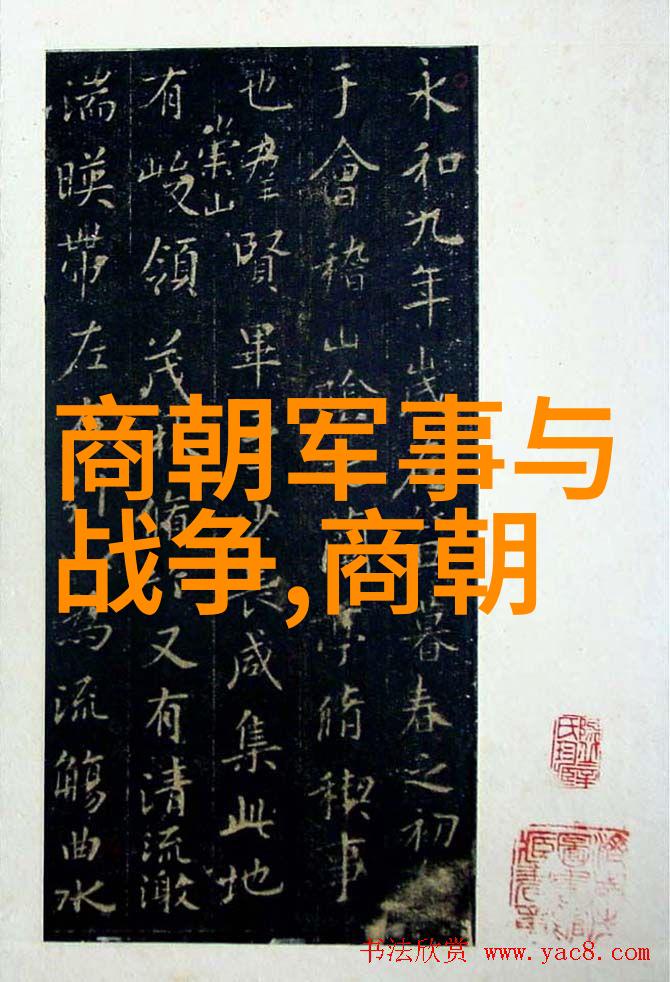 永和九年歲暮春之初
于會稽山陰亭脩禊事
也羣賢畢少長咸集此地
有崇山峻領茂林脩又有清流激
湍暎帶左為流觴曲水
商朝军事与
战争,商朝
书法欣赏 www.yac8.com